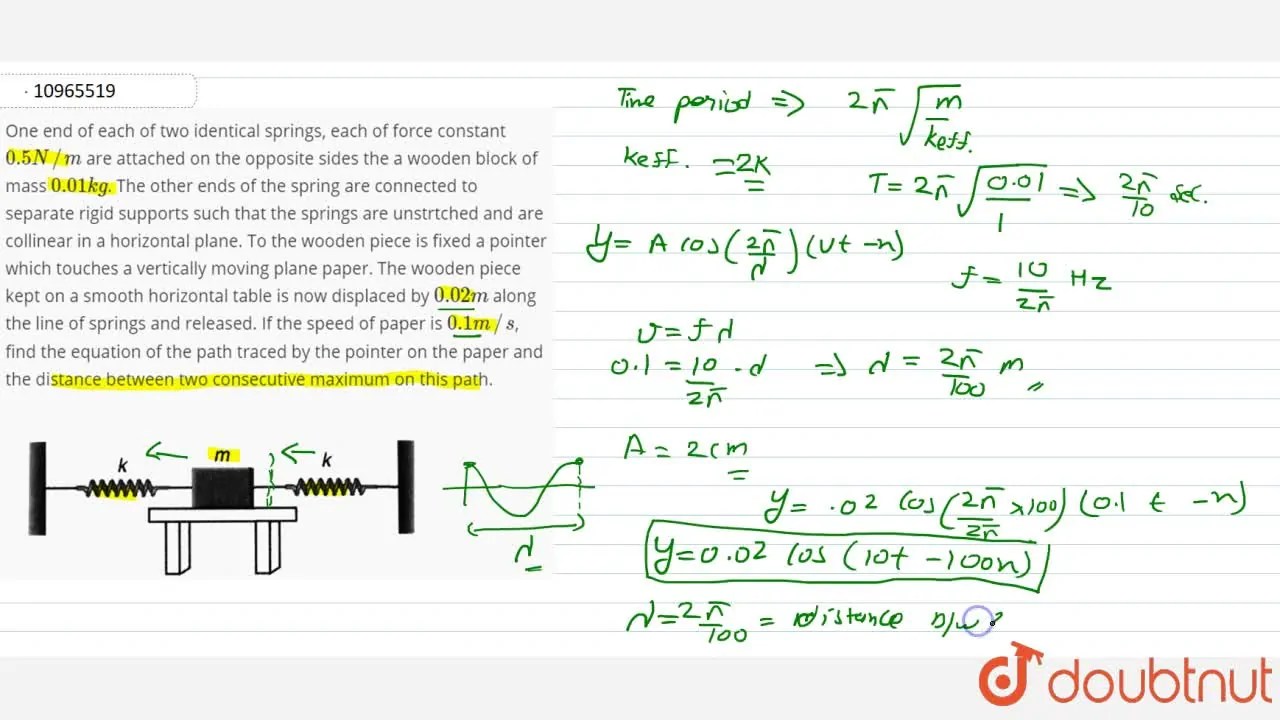 · 10965519
One end of each of two identical springs, each of force constant
0.5N/m are attached on the opposite sides the a wooden block of
mass 0.01kg. The other ends of the spring are connected to
separate rigid supports such that the springs are unstrtched and are
collinear in a horizontal plane. To the wooden piece is fixed a pointer
which touches a vertically moving plane paper. The wooden piece
kept on a smooth horizontal table is now displaced by 0.02m along
the line of springs and released. If the speed of paper is 0.1m/s,
find the equation of the path traced by the pointer on the paper and
the distance between two consecutive maximum on this path.
k
m
k
λ
Time period => 2π √(m/keff.)
keff. = 2K
T = 2π √(0.01/1) => 2π/10 sec.
y = A cos(2π/λ)(vt - x)
f = 10/2π Hz
v = fλ
0.1 = 10/2π . λ => λ = 2π/100 m
A = 2cm
y = .02 cos(2π/2π × 100)(0.1 t - x)
y = 0.02 cos (10t - 100x)
λ = 2π/100 = distance b/w
doubtnut